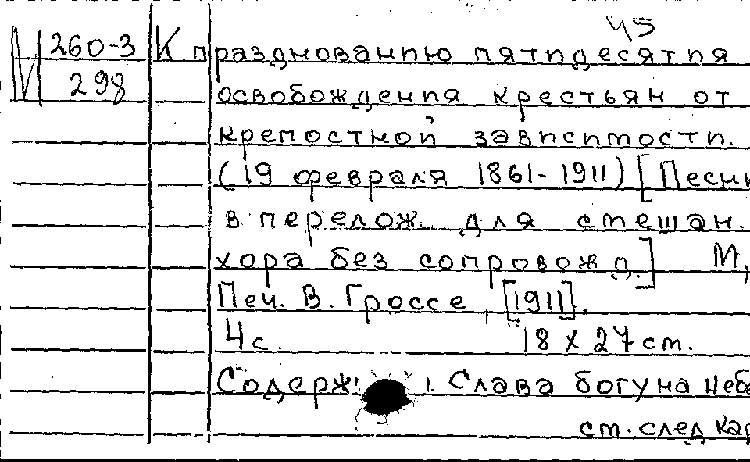 45
260-3 К празднованию пятидесятия
298 освобождения крестьян от
крепостной зависимости.
(19 февраля 1861-1911) [Песни
в перелож. для смешан.
хора без сопровожд.] М,
Печ. В. Гроссе, [1911].
4с. 18 х 27 см.
Содерж: 1. Слава богу на небе
см. след кар